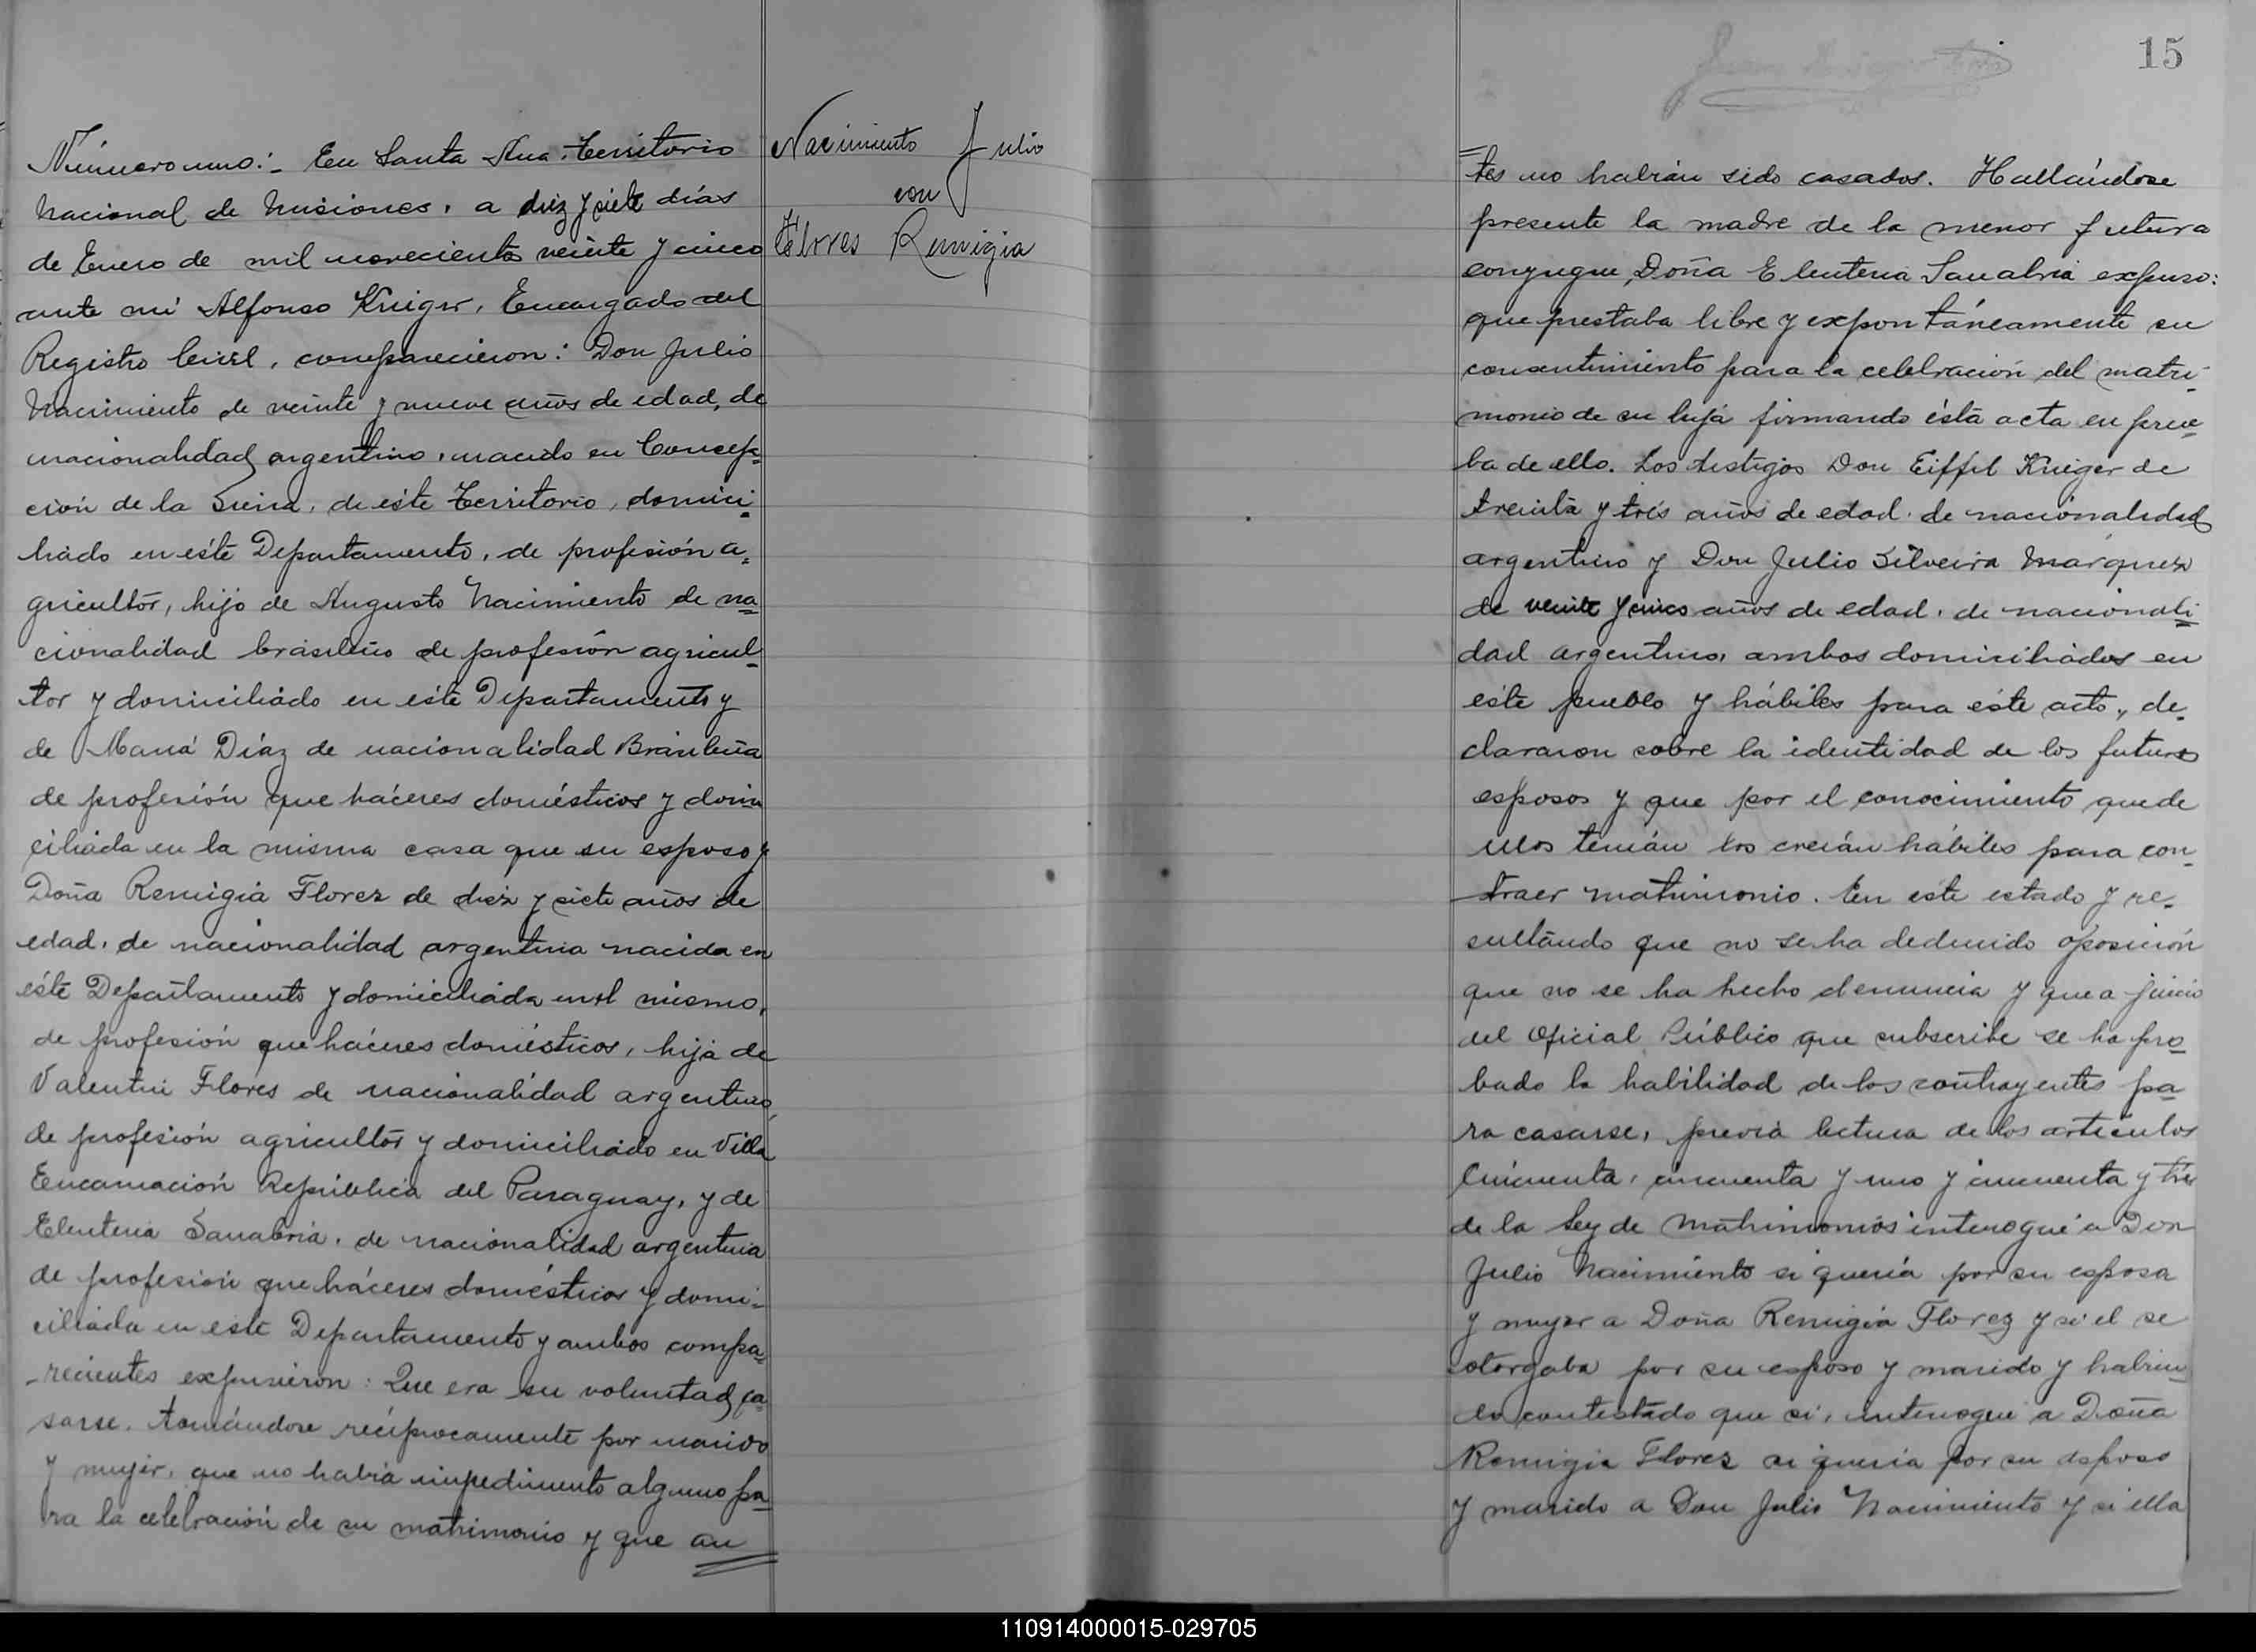 Número uno:- En Santa Ana. Territorio
Nacional de Misiones, a diez y siete días
de Enero de mil novecientos veinte y cinco
ante mi Alfonso Krieger, Encargado del
Registro Civil, comparecieron: Don Julio
Nacimiento de veinte y nueve años de edad, de
nacionalidad argentino, nacido en Concep=
ción de la Sierra, de éste Territorio, domici=
liado en éste Departamento, de profesión a=
gricultor, hijo de Augusto Nacimiento de na=
cionalidad brasileño de profesión agricul=
tor y domiciliado en éste Departamento y
de María Díaz de nacionalidad Brasileña
de profesión que háceres domésticos y domi
ciliada en la misma casa que su esposo y
Doña Remigia Florez de diez y siete años de
edad, de nacionalidad argentina nacida en
éste Departamento y domiciliada en el mismo,
de profesión que háceres domésticos, hija de
Valentin Flores de nacionalidad argentino,
de profesión agricultor y domiciliado en Villa
Encarnación República del Paraguay, y de
Eleuteria Sanabria, de nacionalidad argentina
de profesión que háceres domésticos y domi=
ciliada en este Departamento y ambos compa=
recientes expusieron: Que era su voluntad ca=
sarse, tomándose recíprocamente por marido
y mujer, que no había impedimento alguno pa=
ra la celebración de su matrimonio y que an
Nacimiento Julio
con
Flores Remigia
15
tes no habían sido casados. Hallándose
presente la madre de la menor futura
conyugue, Doña Eleuteria Sanabria expuso:
que prestaba libre y expontáneamente su
consentimiento para la celebración del matri-
monio de su hija firmando ésta acta en prue=
ba de ello. Los testigos Don Eiffel Krieger de
treinta y trés años de edad, de nacionalidad
argentino y Don Julio Silveira Márquez
de veinte y cinco años de edad, de nacionali=
dad argentino, ambos domiciliados en
éste pueblo y hábiles para éste acto, de=
clararon sobre la identidad de los futuros
esposos y que por el conocimiento que de
ellos tenían los creían hábiles para con=
traer matrimonio. En este estado y re=
sultando que no se ha deducido oposición
que no se ha hecho denuncia y que a juicio
del Oficial Público que subscribe se ha pro=
bado la habilidad de los contrayentes pa=
ra casarse, previa lectura de los artículos
Cincuenta, cincuenta y uno y cincuenta y tres
de la Ley de Matrimonios interogué a Don
Julio Nacimiento si quería por su esposa
y mujer a Doña Remigia Florez y si el se
otorgaba por su esposo y marido y habien=
do contestado que si, interrogué a Doña
Remigia Florez si quería por su esposo
y marido a Don Julio Nacimiento y si ella
110914000015-029705